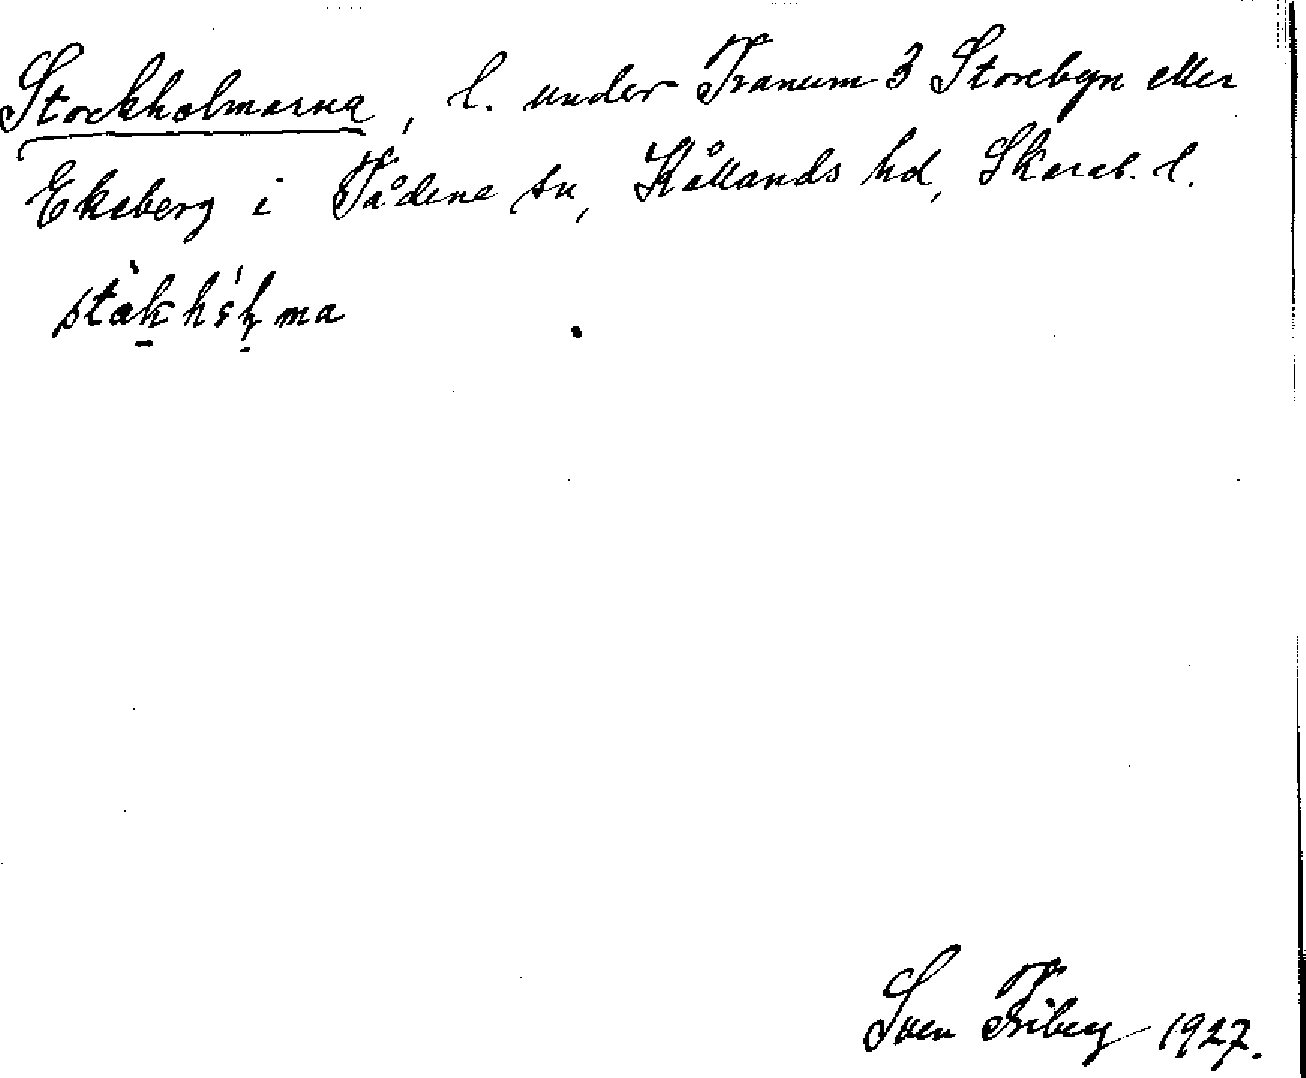 Stockholmarna, l. under Tranum 3 Storebyn eller
Ekeberg i Tådene sn, Kållands hd, Skarab. l.
stàkhólma
Sven Friberg 1927.